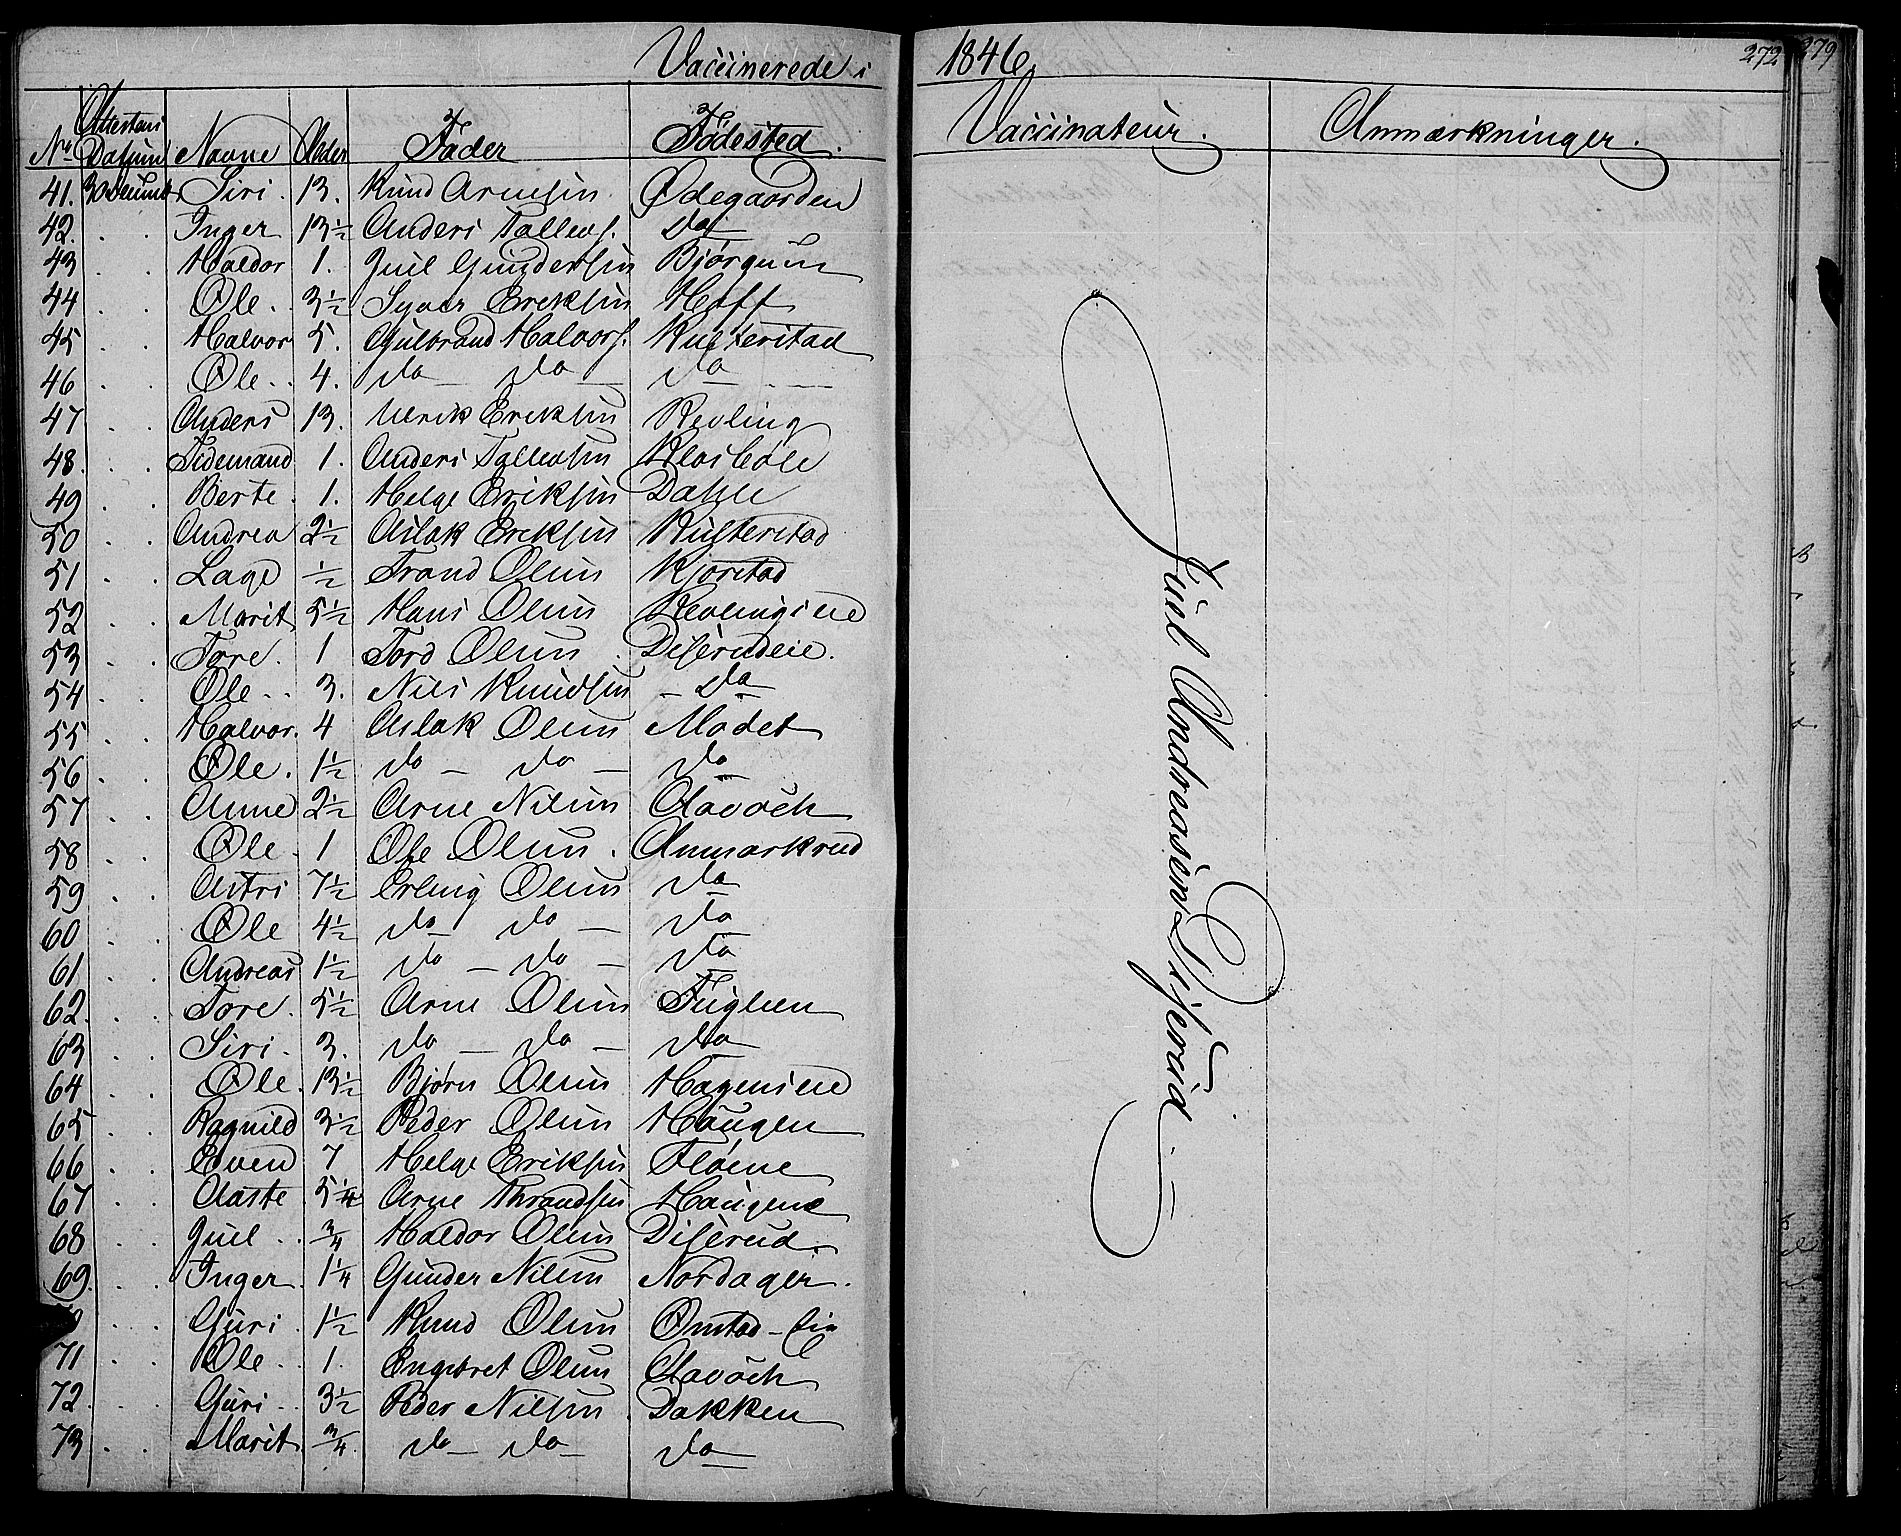 Vaccinerede i 1846. 272 279
No Attestens Datum Navne Alder Fader Fødested. Vaccinateur. Anmærkninger.
41. Siri. 13. Knud Arnesen. Ødegaarden
42. Inger 13½ Anders Tollevs. Do
43 Haldor 1. Juel Gundersen Bjørgum
44 Ole. 3½ Syver Eriksen Hoff
45 Halvor 5. Gulbrand Halvors. Rusterstad
46 Ole. 4. do do do
47 Anders 13. Ulrik Eriksen Revling
48. Tidemand 1. Anders Tollevsen
49 Berte. 1. Helge Eriksen Dahle
50 Andrea 2½ Aslak Eriksen Rusterstad
51 Lage ½ Trond Olsen Kjorstad
52 Marit 5½ Hans Olsen
53 Tore. 1 Tord Olsen Diserudeie.
54 Ole. 3. Nils Knudsen do
55 Halvor. 4 Aslak Olsen Modet
56 Ole. 1½ do do do
57 Anne 2½ Arne Nilsen
58 Ole. 1 Ole Olsen. Anmarkrud
59 Astri 7½ Erling Olsen do
60 Ole 4½ do do do
61 Andreas 1½ do do do
62. Tore. 5½ Arne Olsen Fuglien
63 Siri. 3. do do do
64 Ole. 13½ Bjørn Olsen
65 Ragnild 3½ Peder Olsen Haugen
66 Even 7 Helge Eriksen Fløene
67 Aaste 5¼ Arne Throndsen Haugene
68 Juel ¾ Haldor Olsen Diserud.
69. Inger. 1¼ Gunder Nilsen Nordager.
Guri. 1½ Knud Olsen Omstad-eie
71 Ole. 1. Engebret Olsen
72. Guri. 3½ Peder Nilsen. Bakken
73 Marit ¾. do do do
Juel Andreasen Diserud.